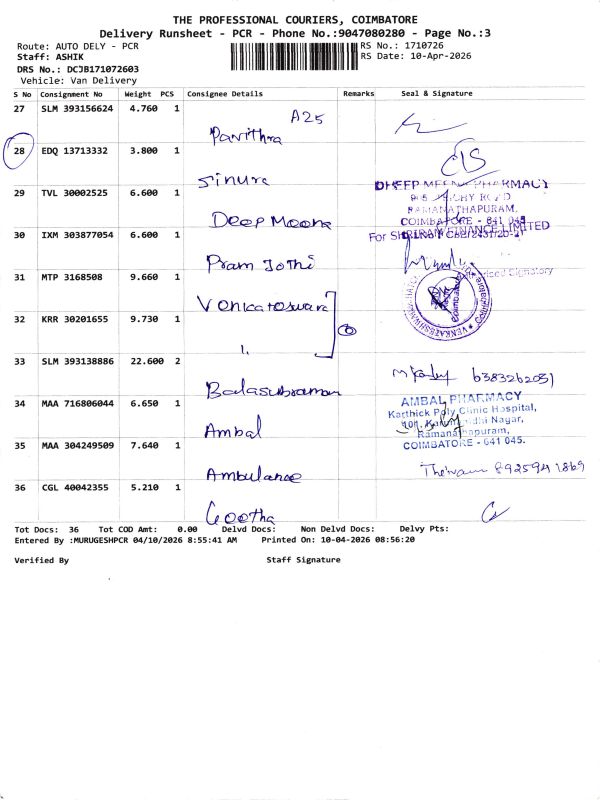 THE PROFESSIONAL COURIERS, COIMBATORE
Delivery Runsheet - PCR - Phone No.:9047080280 - Page No.:3
Route: AUTO DELY - PCR
RS No.: 1710726
Staff: ASHIK
RS Date: 10-Apr-2026
DRS No.: DCJB171072603
Vehicle: Van Delivery
S No Consignment No Weight PCS Consignee Details Remarks Seal & Signature
27 SLM 393156624 4.760 1
A25
Pavithra
28 EDQ 13713332 3.800 1
Sinura
29 TVL 30002525 6.600 1
DHEEP MEENA PHARMACY
RAMANATHAPURAM.
COIMBATORE - 641 045
Deep Meena
30 IXM 303877054 6.600 1
For SHRIRAM FINANCE LIMITED
Pram Jothi
Authorised Signatory
31 MTP 3168508 9.660 1
Venkateswara
32 KRR 30201655 9.730 1
33 SLM 393138886 22.600 2
6383262031
Balasubraman
34 MAA 716806044 6.650 1
AMBAL PHARMACY
Karthick Poly Clinic Hospital,
Nagar,
Ramanathapuram,
COIMBATORE - 641 045.
Ambal
35 MAA 304249509 7.640 1
Ambulance
8925941869
36 CGL 40042355 5.210 1
Geetha
Tot Docs: 36 Tot COD Amt: 0.00 Delvd Docs: Non Delvd Docs: Delvy Pts:
Entered By :MURUGESHPCR 04/10/2026 8:55:41 AM Printed On: 10-04-2026 08:56:20
Verified By Staff Signature